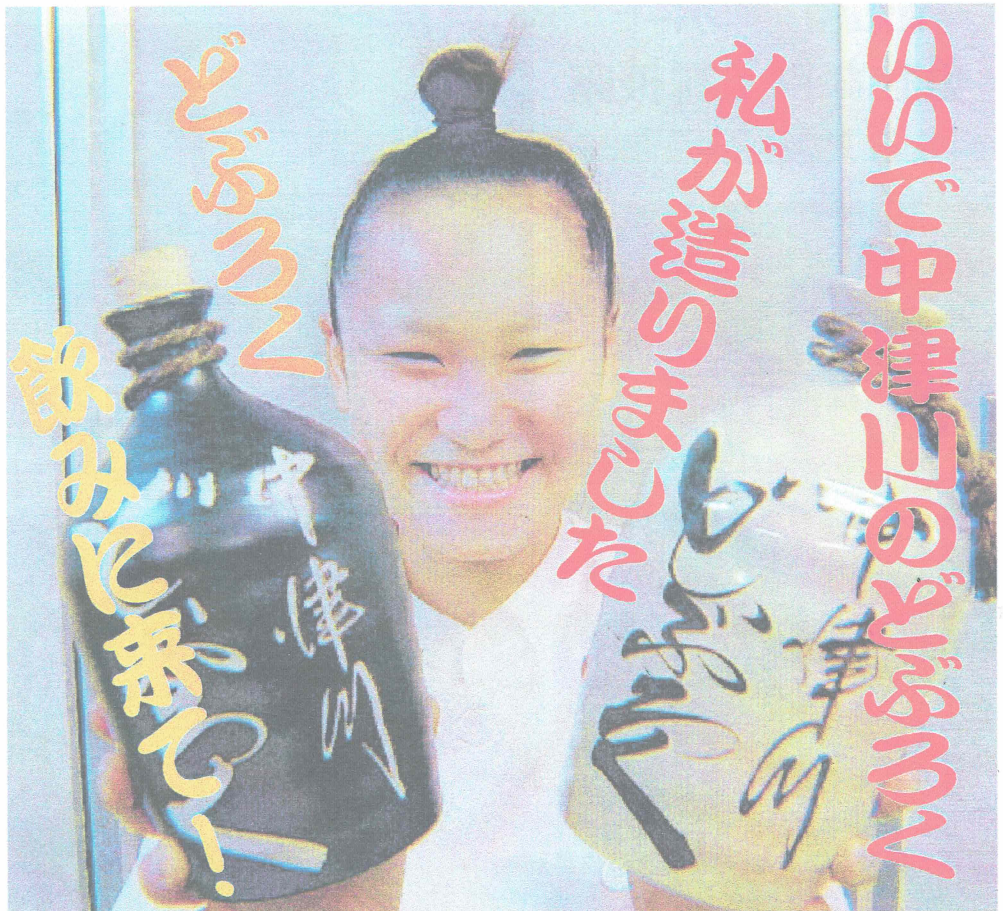 いいで中津川のどぶろく
私が造りました
どぶろく
飲みに来て!
中津川
どぶろく
中津川
どぶろく